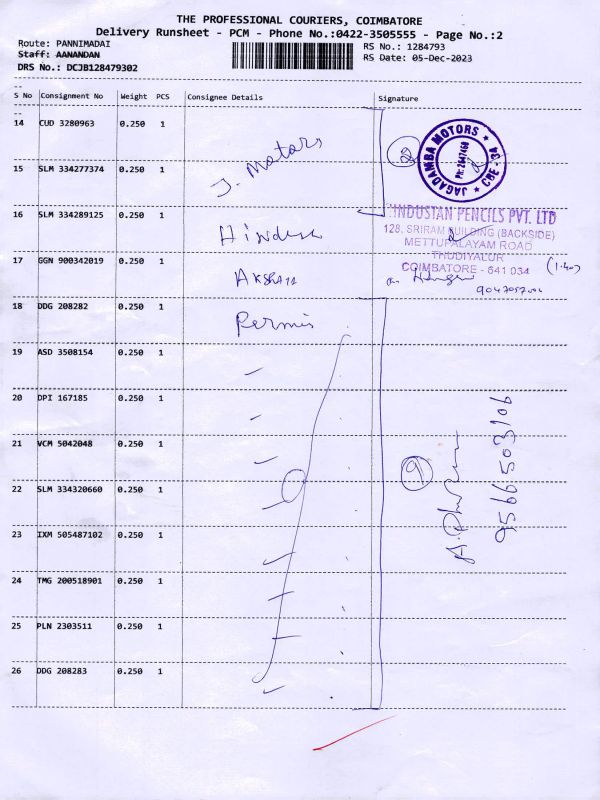 THE PROFESSIONAL COURIERS, COIMBATORE
Delivery Runsheet - PCM - Phone No.:0422-3505555 - Page No.:2
Route: PANNIMADAI
RS No.: 1284793
Staff: AANANDAN
RS Date: 05-Dec-2023
DRS No.: DCJB128479302
S No Consignment No Weight PCS Consignee Details Signature
14 CUD 3280963 0.250 1
JAGADAMBA MOTORS ★ CBE - 34 ★
15 SLM 334277374 0.250 1 J. Motors
16 SLM 334289125 0.250 1
HINDUSTAN PENCILS PVT. LTD
128, SRIRAM BUILDING (BACKSIDE)
METTUPALAYAM ROAD
THUDIYALUR
COIMBATORE - 641 034
17 GGN 900342019 0.250 1
18 DDG 208282 0.250 1
19 ASD 3508154 0.250 1
20 DPI 167185 0.250 1
21 VCM 5042048 0.250 1
22 SLM 334320660 0.250 1
9
9566503106
23 IXM 505487102 0.250 1
24 TMG 200518901 0.250 1
25 PLN 2303511 0.250 1
26 DDG 208283 0.250 1